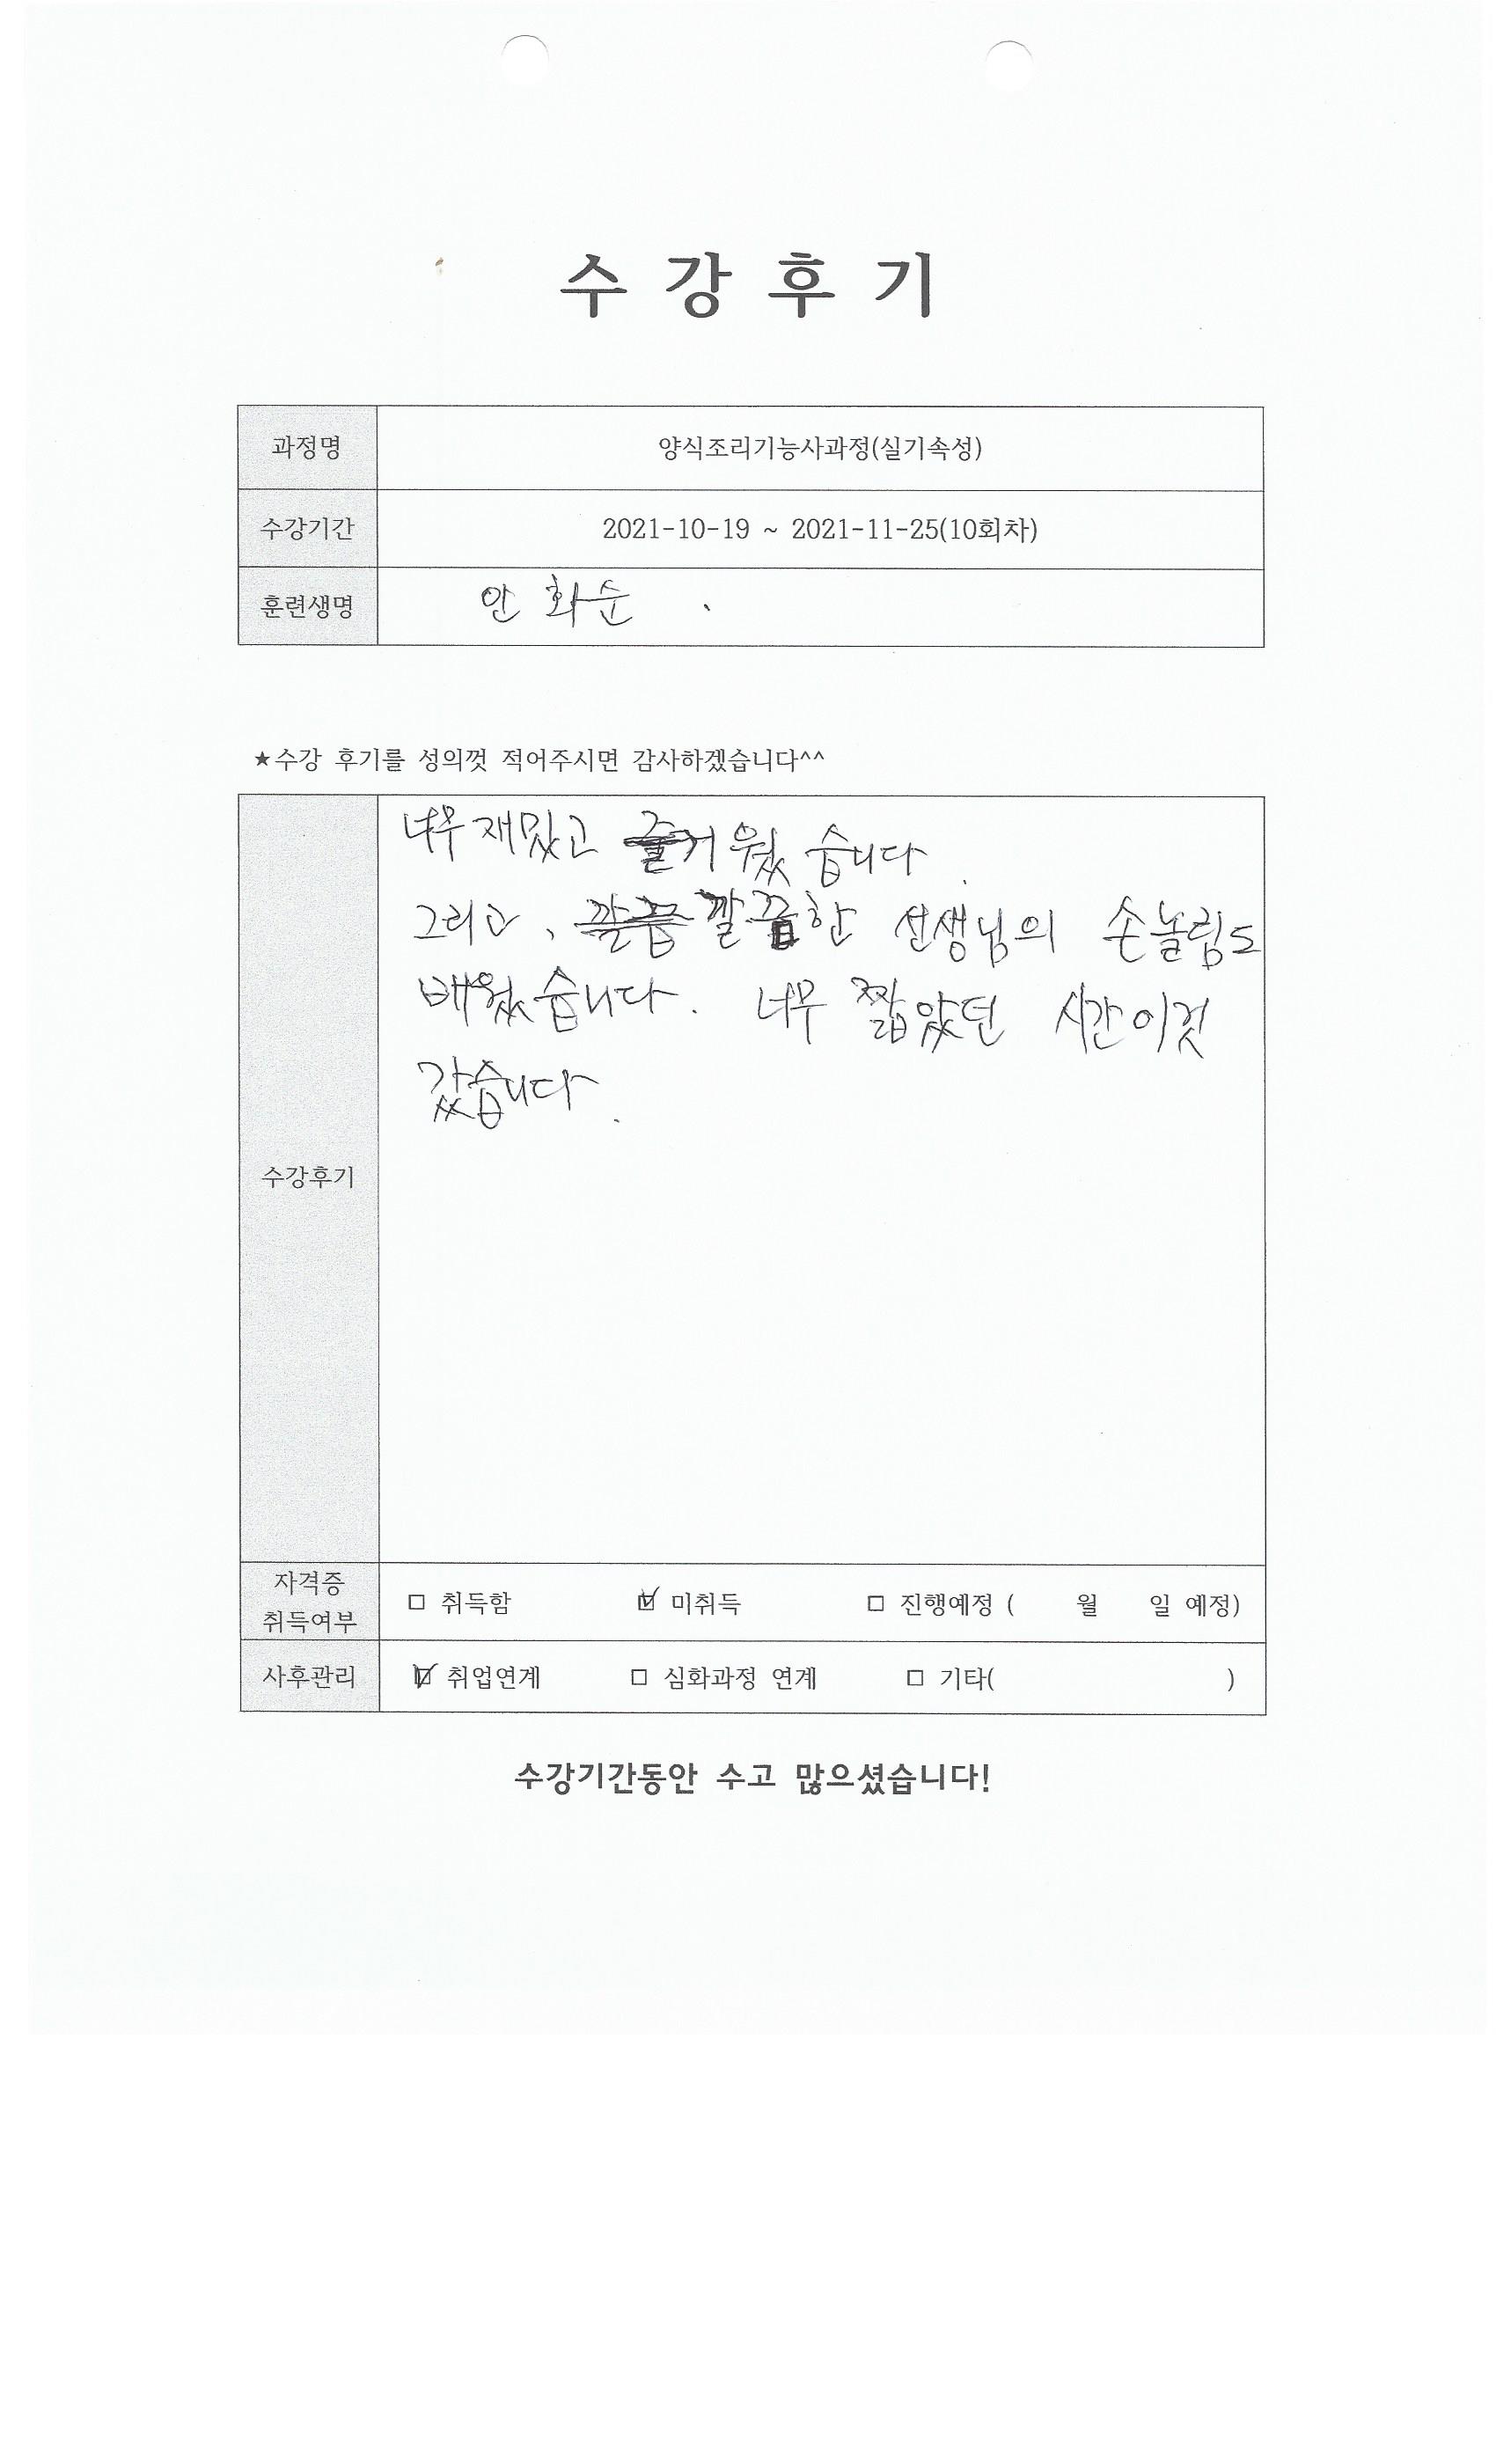 수 강 후 기
과정명 양식조리기능사과정(실기속성)
수강기간 2021-10-19 ~ 2021-11-25(10회차)
훈련생명 안 화순 .
★수강 후기를 성의껏 적어주시면 감사하겠습니다^^
너무 재밌고 즐거웠습니다.
그리고, 깔끔한 선생님의 손놀림도
배웠습니다. 너무 짧았던 시간이것
갔습니다.
수강후기
자격증 취득여부 □ 취득함 ☑ 미취득 □ 진행예정 ( 월 일 예정)
사후관리 ☑ 취업연계 □ 심화과정 연계 □ 기타( )
수강기간동안 수고 많으셨습니다!